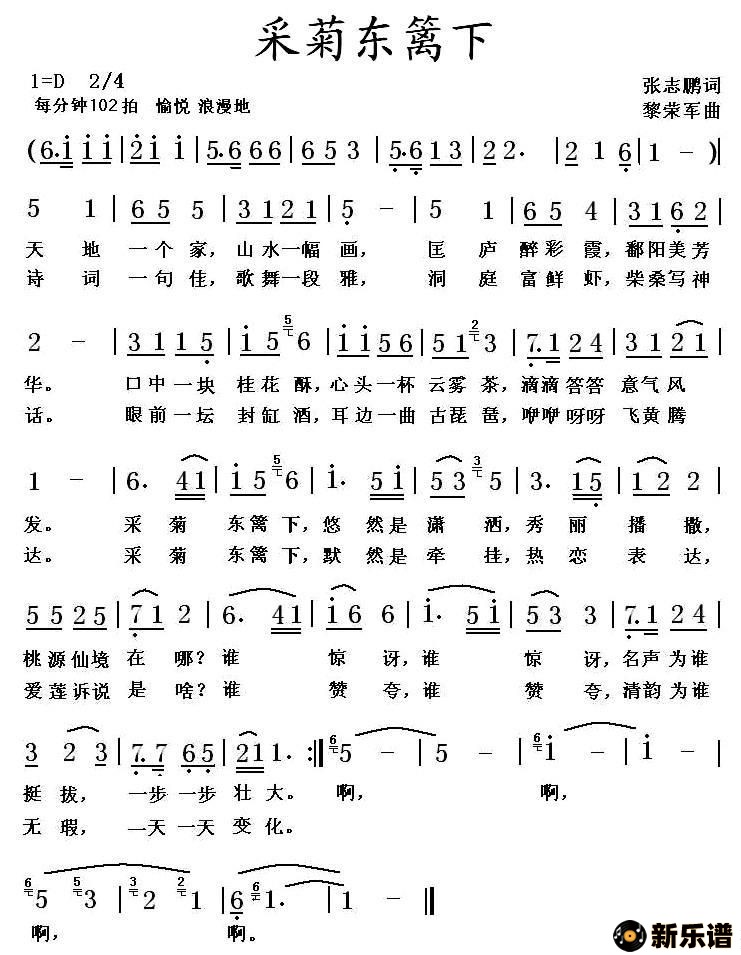 采菊东篱下
1=D 2/4
张志鹏词
每分钟102拍 愉悦 浪漫地
黎荣军曲
(6.i i i | 2 i i | 5.6 6 6 | 6 5 3 | 5.6 1 3 | 2 2. | 2 1 6 | 1 - )
5 1 | 6 5 5 | 3 1 2 1 | 5 - | 5 1 | 6 5 4 | 3 1 6 2 |
天 地 一个 家, 山水一幅 画, 匡 庐 醉彩 霞, 鄱阳美芳
诗 词 一句 佳, 歌舞一段 雅, 洞 庭 富鲜 虾, 柴桑写神
2 - | 3 1 1 5 | i 5 5 6 | i i 5 6 | 5 1 2 3 | 7.1 2 4 | 3 2 1 |
华。 口中一块 桂花 酥, 心头一杯 云雾 茶, 滴滴答答 意气风
话。 眼前一坛 封缸 酒, 耳边一曲 古琵 琶, 咿咿呀呀 飞黄腾
1 - | 6. 4 1 | i 5 5 6 | i. 5 i | 5 3 3 5 | 3. 1 5 | 1 2 2 |
发。 采 菊 东篱 下, 悠 然是 潇 洒, 秀 丽 播 撒,
达。 采 菊 东篱 下, 默 然是 牵 挂, 热 恋 表 达,
5 5 2 5 | 7 1 2 | 6. 4 1 | i 6 6 | i. 5 i | 5 3 3 | 7.1 2 4 |
桃源仙境 在 哪? 谁 惊 讶, 谁 惊 讶, 名声为谁
爱莲诉说 是 啥? 谁 赞 夸, 谁 赞 夸, 清韵为谁
3 2 3 | 7.7 6 5 | 2 1 1. :| 6 5 - | - - | 6 i - | i - |
挺 拔, 一步一步 壮 大。 啊, 啊,
无 瑕, 一天一天 变 化。
6 5 5 3 | 3 2 2 1 | 6 6 1. | 1 - ‖
啊, 啊。
新乐谱